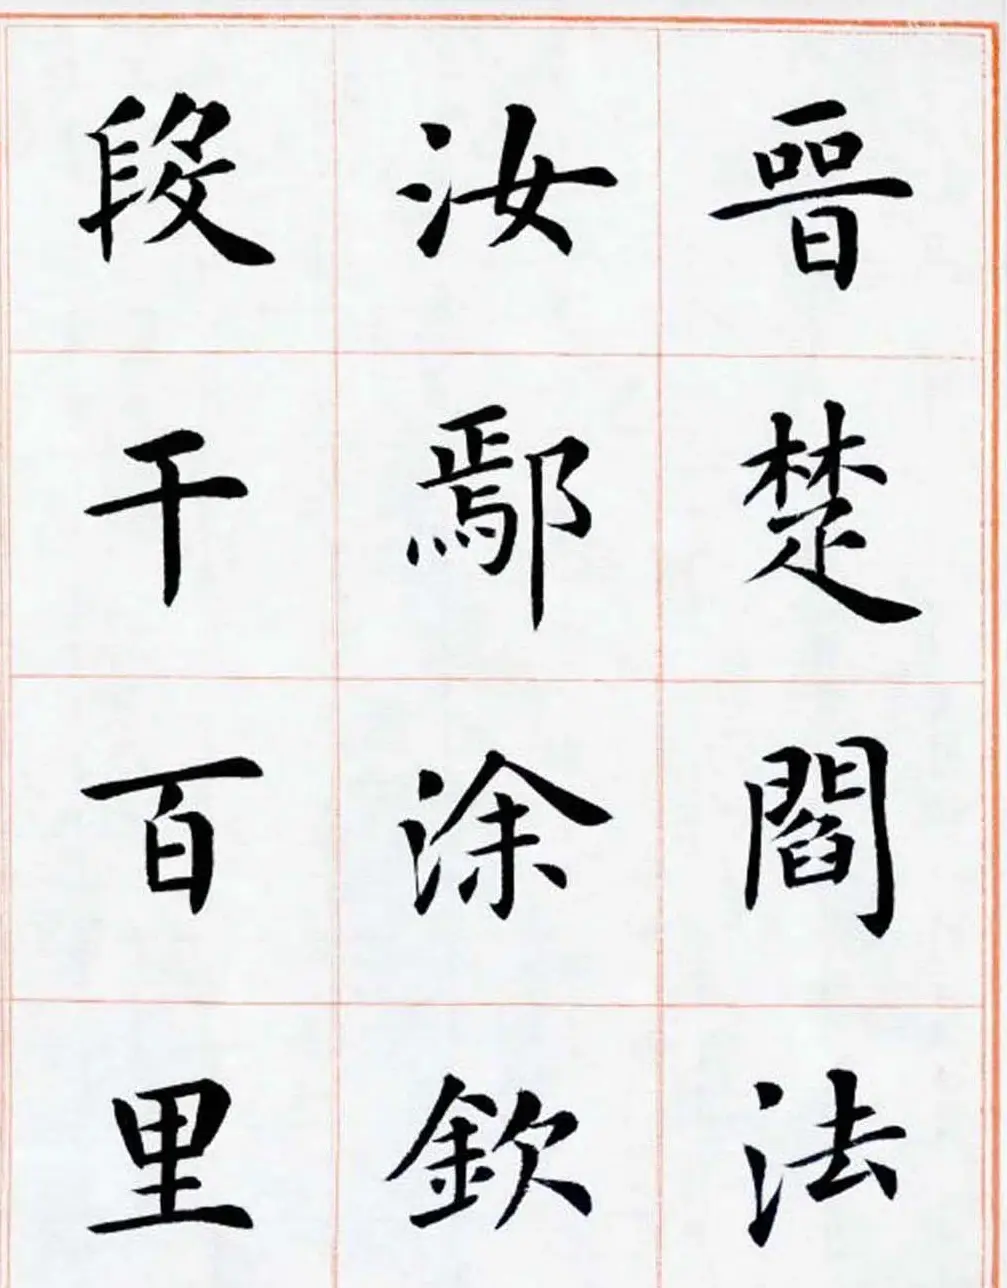 晉楚閻法
汝鄢涂欽
段干百里